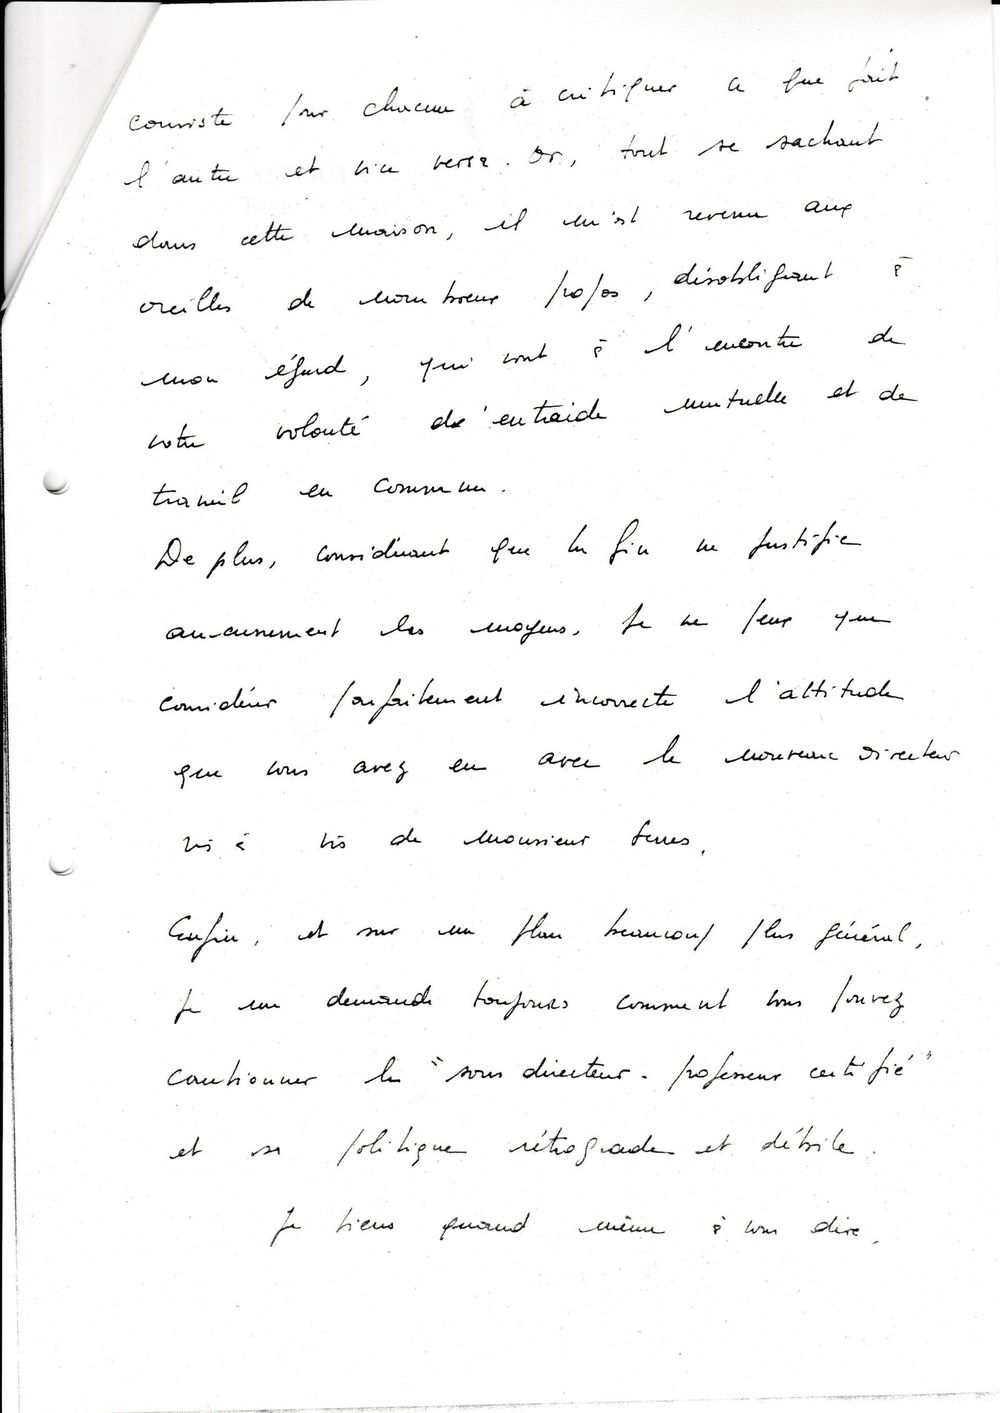 consiste pour chacun à critiquer ce que fait
l'autre et vice versa. Or, tout se sachant
dans cette maison, il m'est revenu aux
oreilles de nombreux propos, désobligeant à
mon égard, qui vont à l'encontre de
votre volonté d'entraide mutuelle et de
travail en commun.
De plus, considérant que la fin ne justifie
aucunement les moyens, je ne peux que
considérer parfaitement incorrecte l'attitude
que vous avez eu avec le nouveau directeur
vis à vis de monsieur
Enfin, et sur un plan beaucoup plus général,
je me demande toujours comment vous pouvez
cautionner le "sous directeur - professeur certifié"
et sa politique rétrograde et débile.
Je tiens quand même à vous dire,